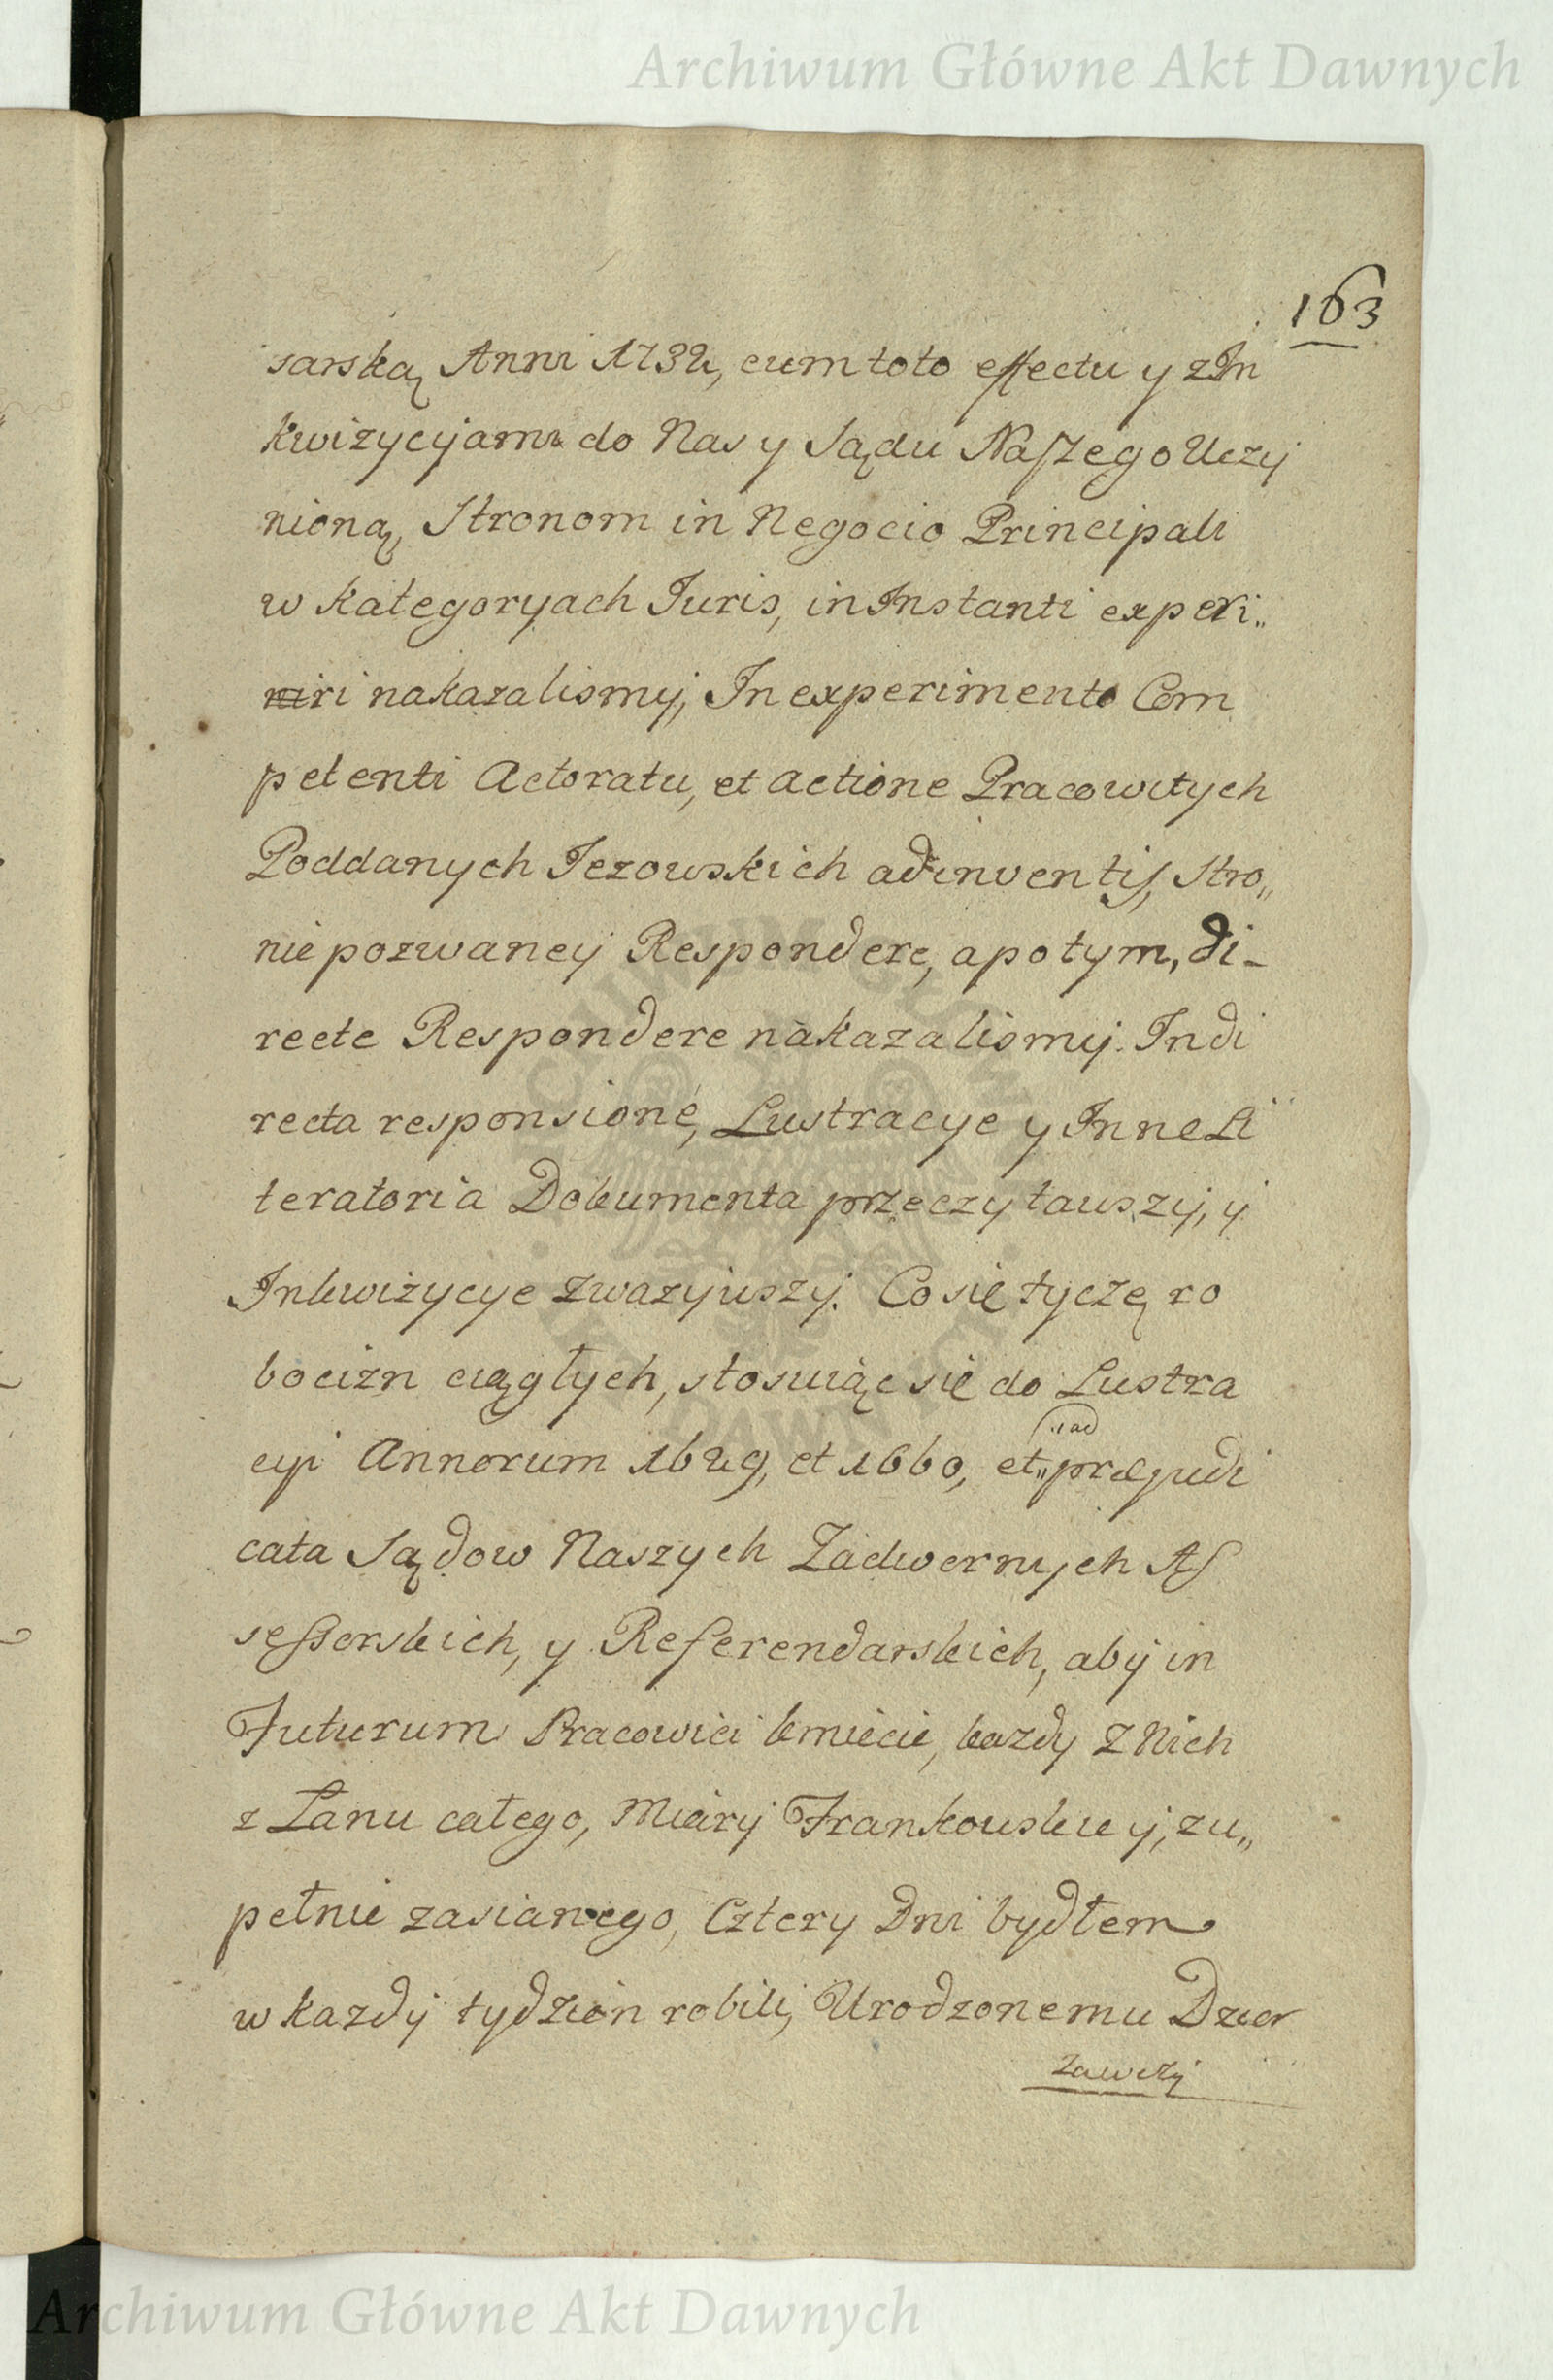 Archiwum Główne Akt Dawnych
163
sarską Anni 1732, cum toto effectu y z In
kwizycyjami do Nas y Sądu Naszego Uczy
nioną, Stronom in Negocio Principali
w kategoryach Juris, in Instanti experi„
ri nakazalismy, In experimento Com
petenti Actoratu, et actione Pracowitych
Poddanych Jezowskich adinventis, Stro„
nie pozwaney Respondere, a potym, di-
recte Respondere nakazalismy. In di
recta responsione, Lustracye y Inne Li
teratoria Dokumenta przeczytawszy, y
Inkwizycye zwazywszy. Co się tyczę ro
bocizn ciągłych, stosuiąc się do Lustra
cyi Annorum 1629, et 1660, et„ præjudi
„ad
cata Sądow Naszych Zadwornych As
sessorskich, y Referendarskich, aby in
Futurum Pracowici kmiecie, kazdy z Nich
z Łanu całego, Miary Frankowskiey, zu„
pełnie zasianego, Cztery Dni bydłem
w kazdy tydzien robili, Urodzonemu Dzier
zawczy
Archiwum Główne Akt Dawnych